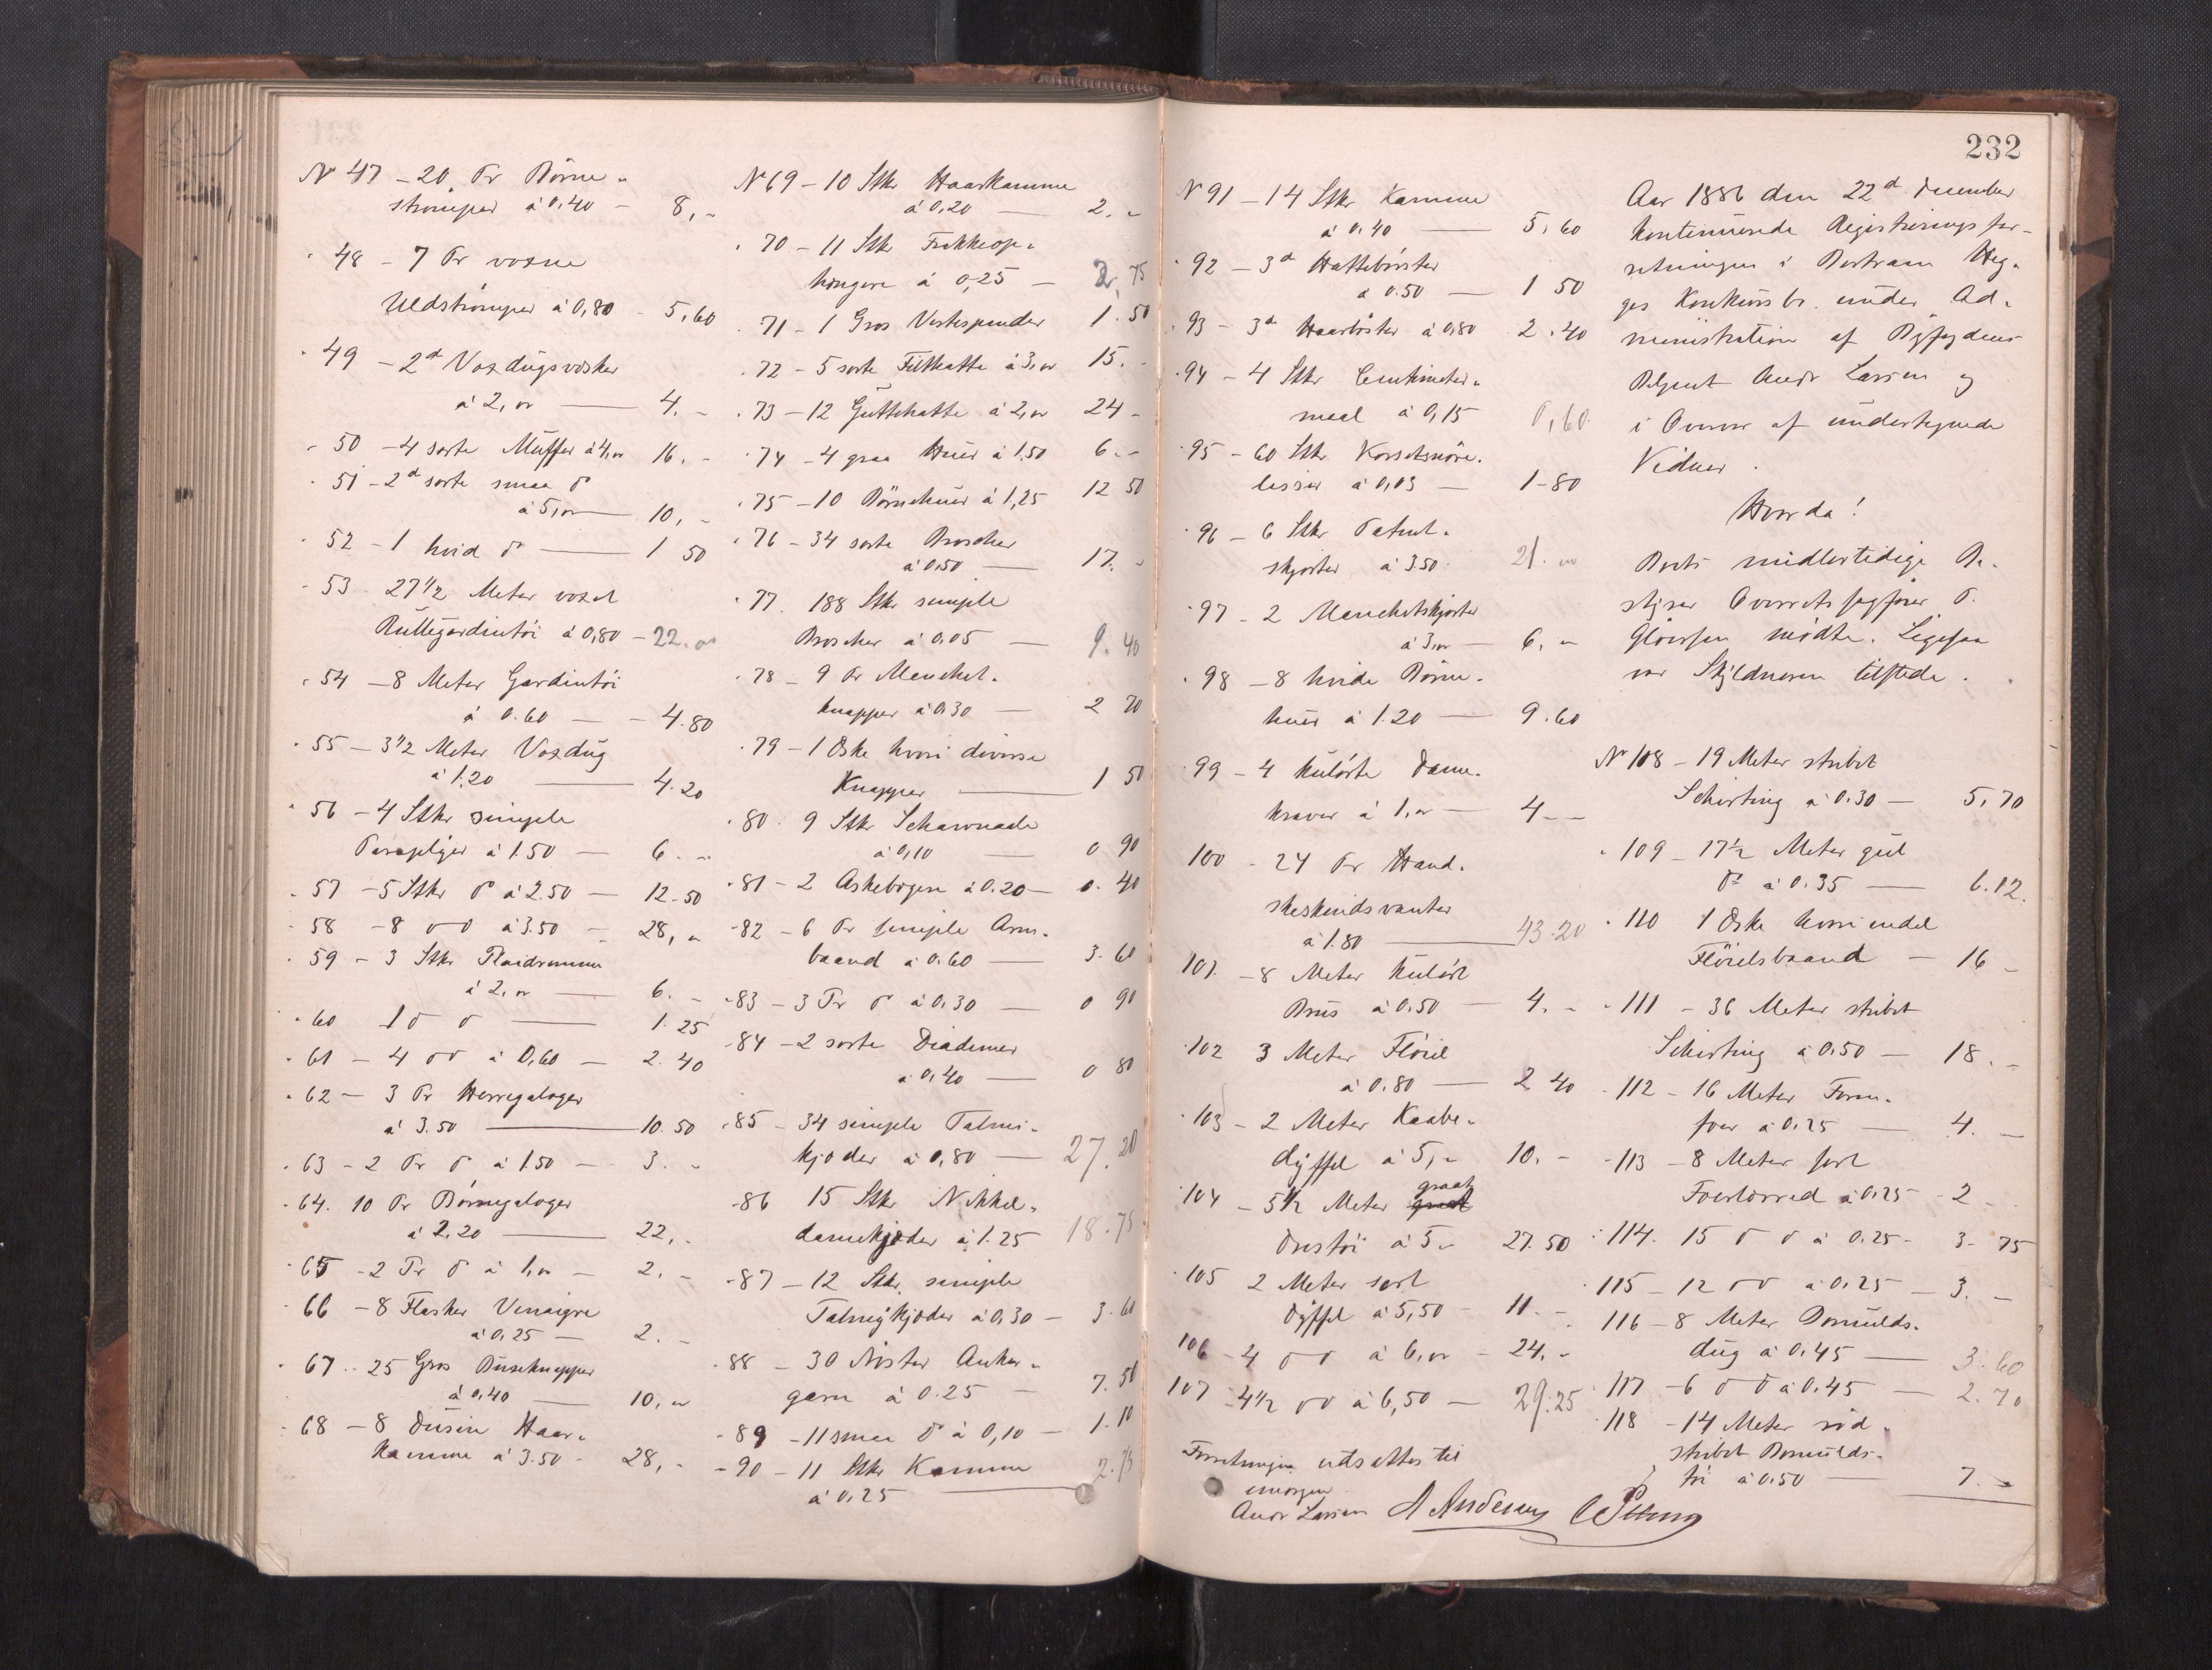 232
No 47 - 20 Pr Börne-
strömper á 0,40 - 8,-
48 - 7 Pr voxne
Uldströmper á 0,80 - 5,60
49 - 2d Voxdugsvesker
á 2,00 - 4.-
50 - 4 sorte Muffer á 4,00 16.-
51 - 2d sorte smaa do
á 5,00 - 10,-
52 - 1 hvid do - 1 50
53 27 1/2 Meter voxet
Rullegardintöi á 0,80 - 22.00
54 - 8 Meter Gardintöi
á 0.60 - 4.80
55 - 3 1/2 Meter Voxdug
á 1.20 - 4.20
56 - 4 Stkr simple
Paraplyer á 1.50 - 6.-
57 - 5 Stkr do á 2.50 - 12.50
58 - 8 do do á 3.50 - 28,-
59 - 3 Stkr Plaidremme
á 2,00 - 6.-
60 1 do do - 1.25
61 - 4 do do á 0,60 - 2.40
62 - 3 Pr Herregaloger
á 3.50 - 10.50
63 - 2 Pr do á 1.50 - 3.-
64. 10 Pr Börnegaloger
á 2,20 - 22,-
65 - 2 Pr do á 1,00 - 2,-
66 - 8 Flasker Vinaigre
á 0,25 - 2.-
67 - 25 Gros Buxeknapper
á 0,40 - 10,-
68 - 8 Dusin Haar-
kamme á 3.50 - 28,-
No 69 - 10 Stkr Haarkamme
á 0,20 - 2.-
70 - 11 Stkr Frakkeop-
hengere á 0,25 - 2,75
71 - 1 Gros Vestespender 1.50
72 - 5 sorte Filthatte á 3,00 15.-
73 - 12 Guttehatte á 2,00 24 -
74 - 4 graa Huer á 1.50 6.-
75 - 10 Börnehuer á 1,25 12 50
76 - 34 sorte Broscher
á 0.50 - 17.-
77. 188 Stkr simple
Broscher á 0,05 - 9.40
78 - 9 Pr Manchet-
knapper á 0.30 - 2 70
79 - 1 Æske hvori diverse
Knapper - 1 50
80. 9 Stkr Schawnaale
á 0,10 - 0 90
81 - 2 Askebegere á 0.20 - 0.40
82 - 6 Pr simple Arm-
baand á 0.60 - 3.60
83 - 3 Pr do á 0,30 - 0 90
84 - 2 sorte Diademer
á 0,40 - 0 80
85 - 34 simple Talmi-
kjeder á 0,80 - 27.20
86 15 Stkr Nikkel-
damekjeder á 1.25 18.75
87 - 12 Stkr simple
Talmikjeder á 0,30 - 3.60
88 - 30 Nöster Anker-
garn á 0.25 - 7.50
89 - 11 smaa do á 0,10 - 1.10
90 - 11 Stkr Kamme
á 0,25 - 2.75
No 91 - 14 Stkr Kamme
á 0,40 - 5,60
92 - 3d Hattebörster
á 0.50 - 1 50
93 - 3d Haarböster á 0,80 2.40
94 - 4 Stkr Centimeter-
maal á 0,15 0,60
95 - 60 Stkr Korsetsnöre-
lisser á 0,03 - 1-80
96 - 6 Stkr Patent-
skjorter á 3.50 21.00
97 - 2 Manchetskjorter
á 3,00 - 6.-
98 - 8 hvide Börne-
huer á 1.20 - 9.60
99 - 4 kulörte Dame-
kraver á 1,00 - 4 -
100 - 24 Pr Hand-
skeskindsvanter
á 1.80 - 43.20
101. - 8 Meter kulört
Brus á 0.50 - 4.-
102 3 Meter Flöiel
á 0.80 - 2 40
103 - 2 Meter Kaabe-
dyffel á 5,- 10.-
104 - 5 1/2 Meter graat
Drestöi á 5.- 27.50
105 2 Meter sort
Dyffel á 5,50 - 11.-
106 - 4 do do á 6,00 - 24.-
107 - 4 1/2 do do á 6,50 - 29.25
Forretningen udsattes til
imorgen
Andr Larsen A Andersen
Aar 1886 den 22d December
kontinuerede Registreringsfor-
retningen i Bertram Heg-
ges Konkursbo under Ad-
ministration af Byfogdens
Betjent Andr Larsen og
i Overvær af undertegnede
Vidner.
Hvorda!
Boets midlertidige Be-
styrer Overretssagförer P.
Gløersen mødte. Ligesaa
var Skyldneren tilstede.
No 108 - 19 Meter stribet
Schirting á 0.30 - 5.70
109 - 17 1/2 Meter gul
do á 0.35 - 6.12
110 1 Æske hvori endel
Flöielsbaand - 16 -
111 - 36 Meter stribet
Schirting á 0.50 - 18.-
112 - 16 Meter Form-
foer á 0.25 - 4.-
113 - 8 Meter sort
Foerlerred á 0.25 - 2 -
114. 15 do do á 0.25 - 3.75
115 - 12 do do á 0.25 - 3.-
116 - 8 Meter Bomulds-
dug á 0.45 - 3.60
117 - 6 do do á 0.45 - 2.70
118 - 14 Meter röd-
stribet Bomulds-
töi á 0.50 - 7.-